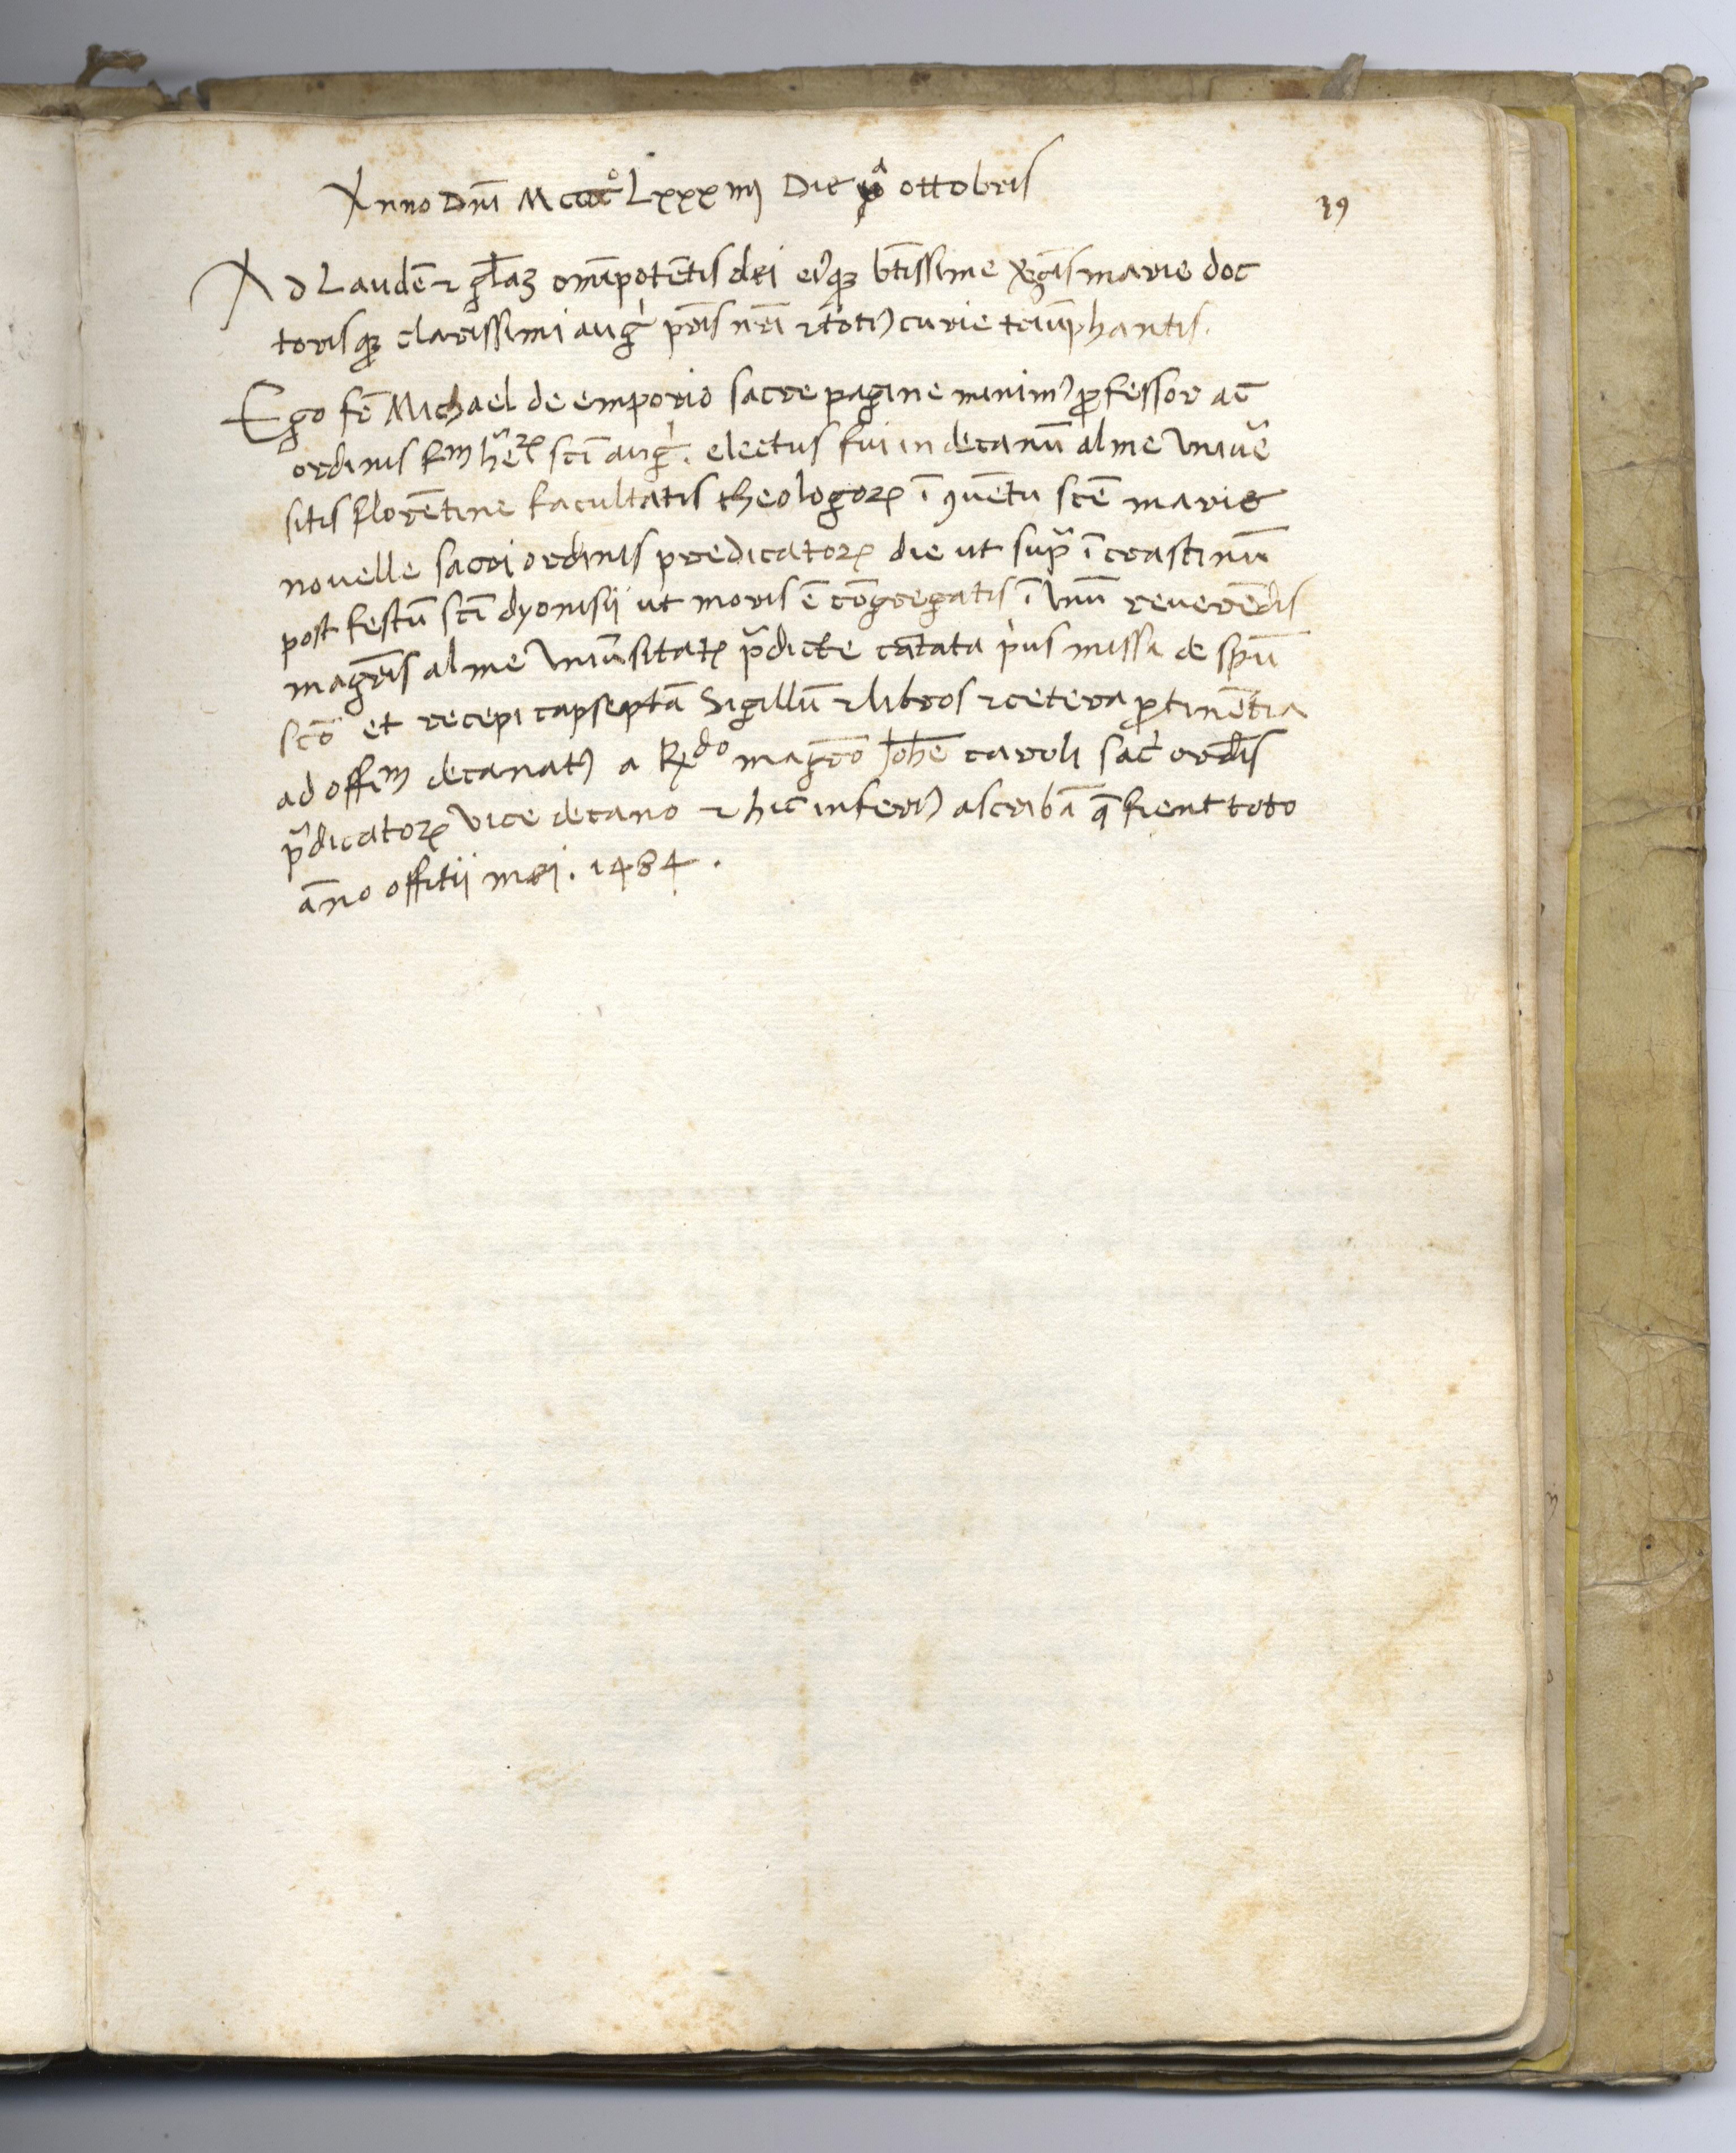 Anno Dnī Mcccc° Lxxx iiij Die ottobris
19
Ad Laudē ⁊ gl̄aȝ om̄ipotētis dei eiꝰqꝫ btīssime v̄gīs marie doc
torisqꝫ clarissimi aug͛ pr̄is nr̄i ⁊ totiꝰ curie triūphantis.
Ego fr̄ Michael de emporio sacre pagine minimꝰ ꝓfessor ac
ordinis frm her̄ꝝ scī aug͛. electus fui in decanū alme vniuē
sitis florētine facultatis theologoꝝ ī ꝯuētu scē marie
nouelle sacri ordinis predicatoꝝ die ut supᵃ ī crastinū
post festū scī dyonisij ut moris ē cōgregatis ī vnū reuerēdis
magr̄is alme vniūsitatꝭ p̄dicte cātata pⁱus missa de spū
scō et recepi capseptā Sigillū ⁊ libros ⁊ cetera ꝑtinētia
ad offm decanatꝰ a Rdo magrō Johē caroli sac͛ ordīs
p̄dicatoꝝ vice decano ⁊ hic inferiꝰ ascribā q̄ fient toto
āno offitij mei. 1484.